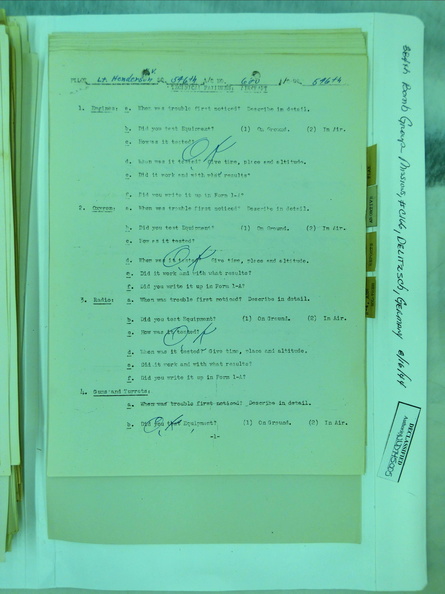 PILOT Lt. Henderson
1. Engines: a. When was trouble first noticed? Describe in detail.
b. Did you test Equipment? (1) On Ground. (2) In Air.
c. How was it tested?
OK
d. When was it tested? Give time, place and altitude.
e. Did it work and with what results?
f. Did you write it up in Form 1-A?
2. a. When was trouble first noticed? Describe in detail.
b. Did you test Equipment? (1) On Ground. (2) In Air.
c. How was it tested?
OK
d. When was it tested? Give time, place and altitude.
e. Did it work and with what results?
f. Did you write it up in Form 1-A?
3. Radio: a. When was trouble first noticed? Describe in detail.
b. Did you test Equipment? (1) On Ground. (2) In Air.
c. How was it tested?
OK
d. When was it tested? Give time, place and altitude.
e. Did it work and with what results?
f. Did you write it up in Form 1-A?
4. Guns and Turrets:
a. When was trouble first noticed? Describe in detail.
b. Did you test Equipment? (1) On Ground. (2) In Air.
O.K.
-1-
384th Bomb Group Mission, DELITZSCH, Germany 8/16/44
DECLASSIFIED